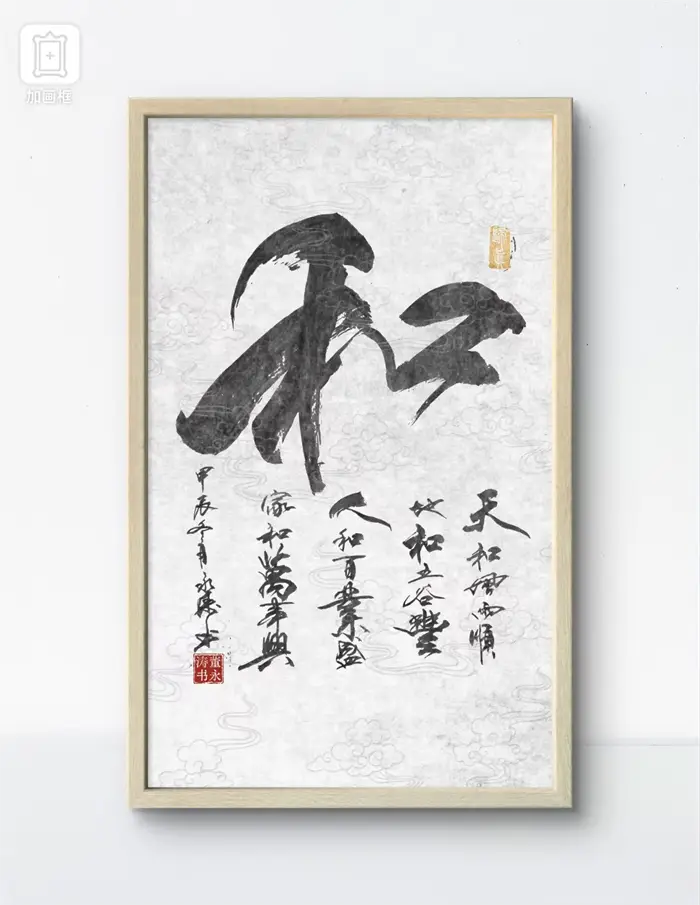 加画框
和
天和風雨順
地和五谷豐
人和百業盛
家和萬事興
甲辰冬月永涛书
董永涛书